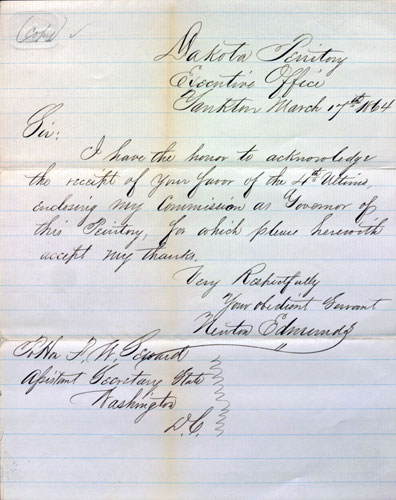 Copy
Dakota Territory
Executive Office
Yankton March 17th 1864
Sir:
I have the honor to acknowledge
the receipt of your favor of the 4th Ultimo,
enclosing my Commission as Governor of
this Territory, for which please herewith
accept my thanks.
Very Respectfully
Your obedient Servant
Newton Edmunds
To Hon F. W. Seward
Assistant Secretary State
Washington
D.C.